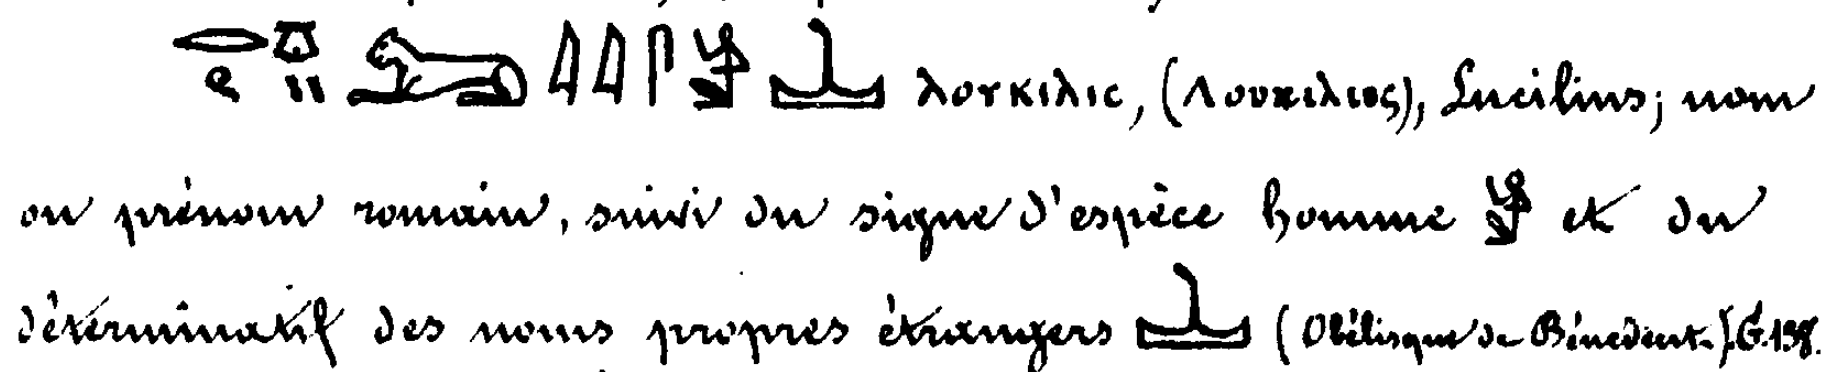 ⲗⲟⲩⲕⲓⲗⲓⲥ, (Λουκιλιος), Lucilius; nom
ou prénom romain, suivi du signe d'espèce homme et du
déterminatif des noms propres étrangers (Obélisque de Bénévent.) G. 138.